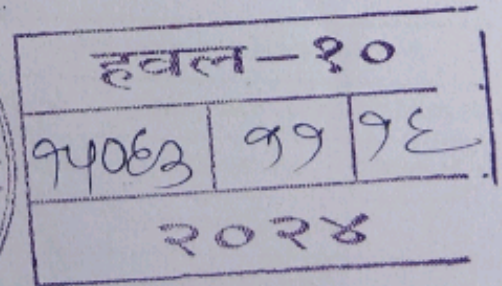 हवल-१०
१५०६३ ११ १६
२०२४